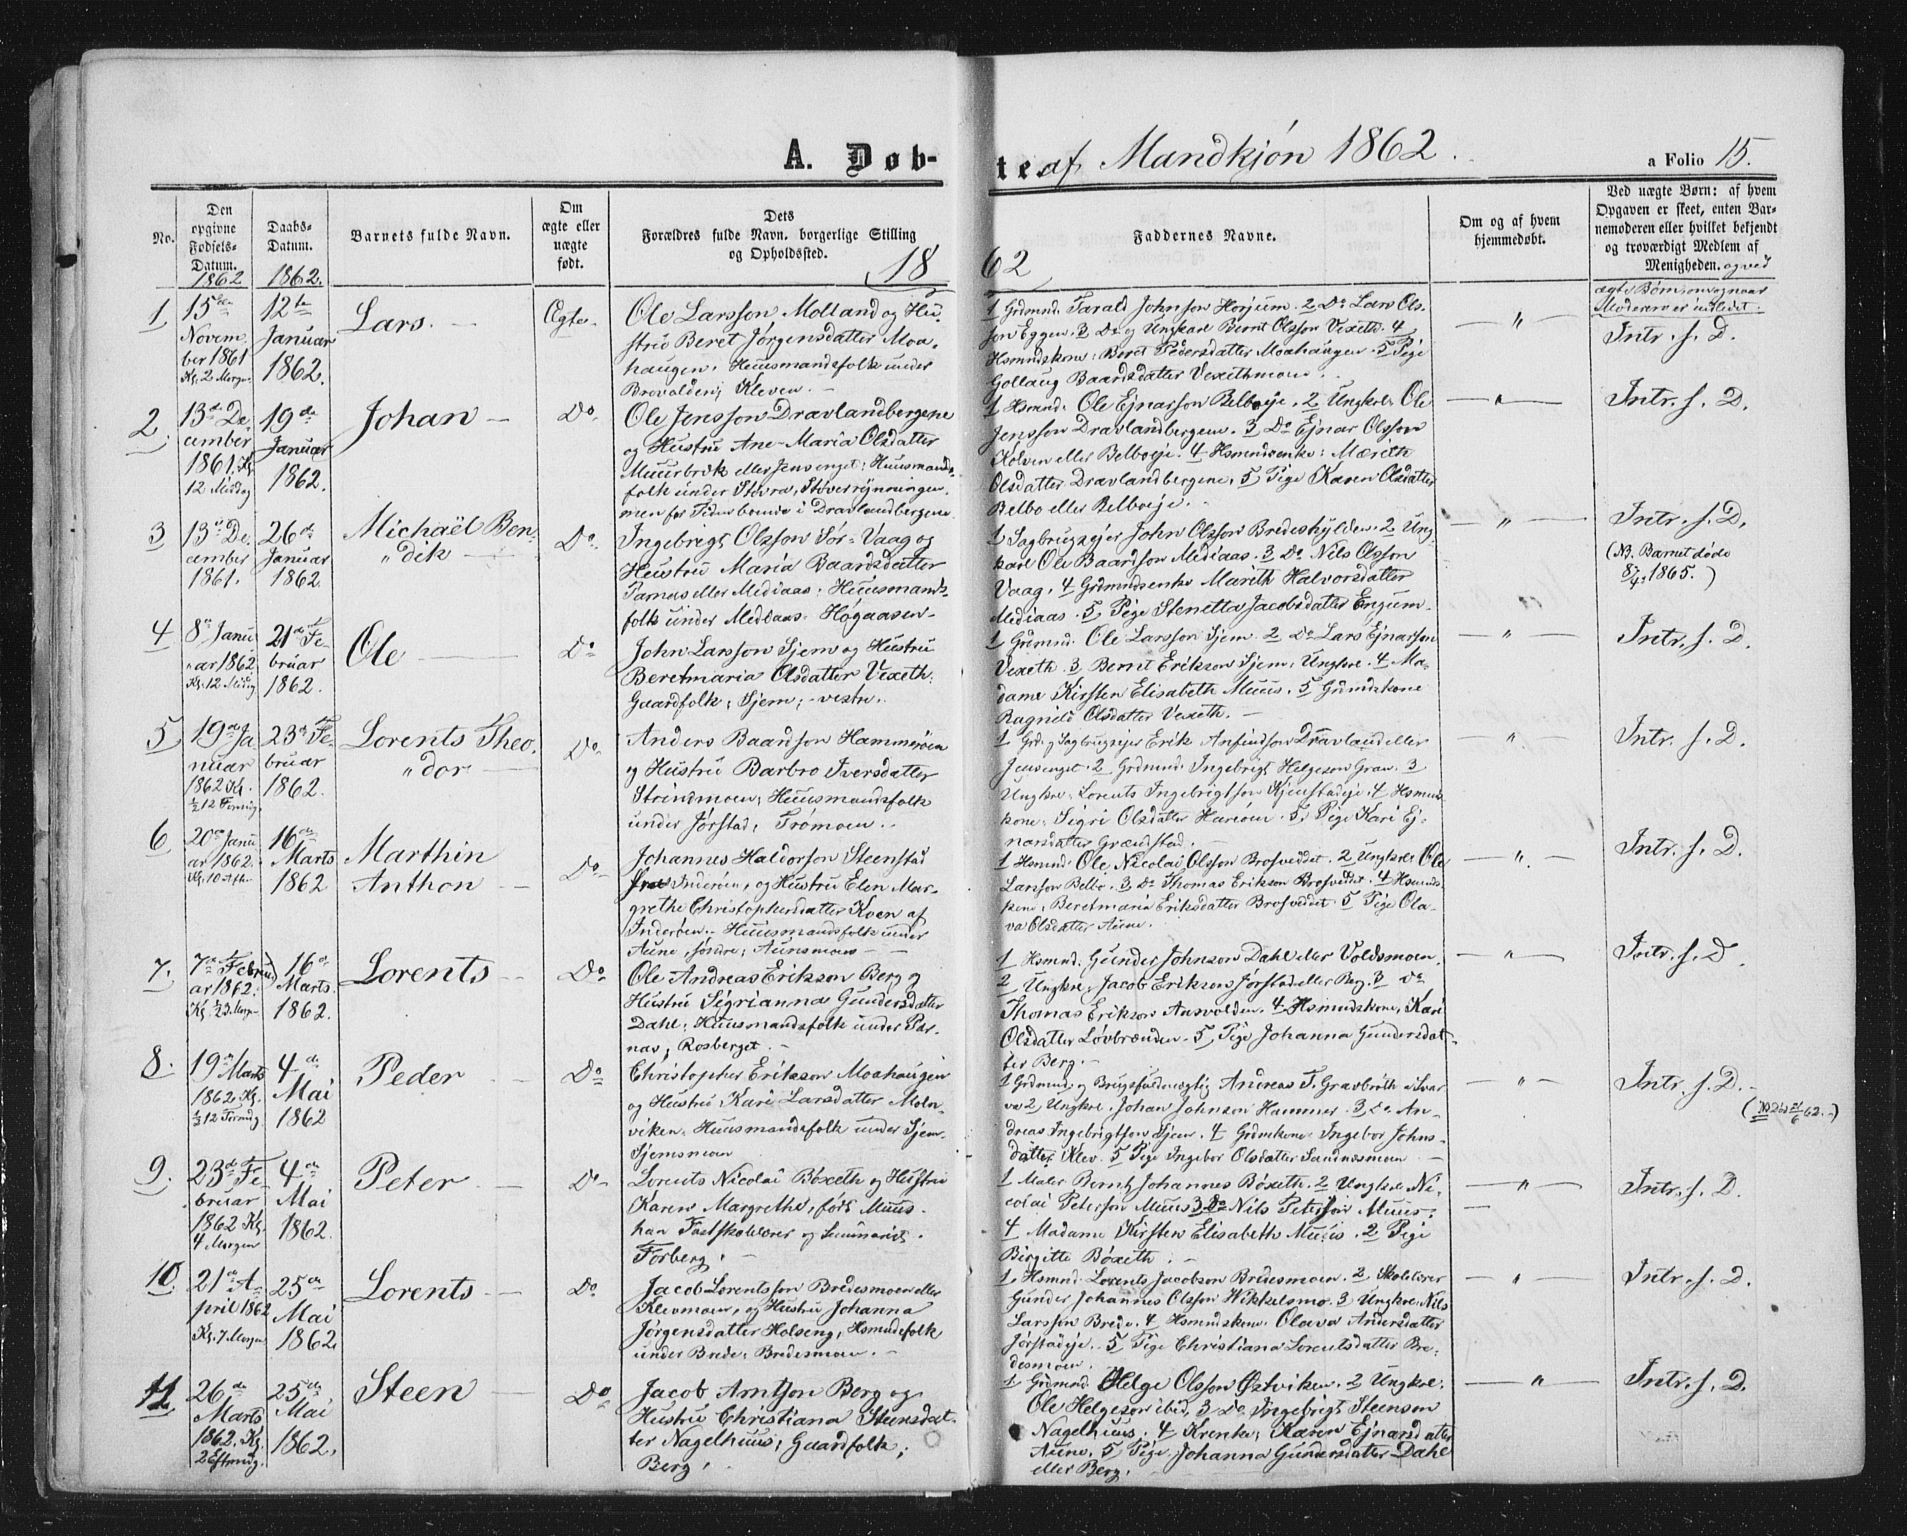 A. Døb-
te af Mandkjön 1862.
a Folio 15.
No.
Den opgivne Fødsels-Datum.
1862
Daabs-Datum.
1862.
Barnets fulde Navn.
Om ægte eller uægte født.
Dets Forældres fulde Navn, borgerlige Stilling og Opholdssted.
1862
Faddernes Navne.
Om og af hvem hjemmedøbt.
Ved uægte Børn: af hvem Opgaven er skeet, enten Barnemoderen eller hvilket bekjendt og troværdigt Medlem af Menigheden. og ved
1
15de
Novem
ber 1861
Kl. 2 Morgn.
12te
Januar
1862.
Lars.
Ægte
Ole Larsson Molland og Hu-
stru Beret Jørgensdatter Moa-
haugen. Huusmandsfolk under
Brovalden; Kleven.
1 Grdmnd. Tarald Johnson Horjum. 2 Do Lars Ols-
son Eggen. 3 Do og Ungkarl Bernt Olsson Vexeth. 4
Hsmndskone: Beret Pedersdatter Moahaugen. 5 Pige
Gollaug Baardsdatter Vexethmoen.
Intr. s. D.
2
13de De-
cember
1861. Kl.
12 Middag
19de
Januar
1862.
Johan
Do
Ole Jensson Dravlandbergene
og Hustru Ane-Maria Olsdatter
Muusbræk eller Jensenget; Huusmands-
folk under Stövra, Stöverrynningen,
men for Tiden boende i Dravlandbergene
1 Hsmnd. Ole Ejnarson Belboeje. 2 Ungkrl: Ole
Jensson Dravlandbergene. 3 Do Ejnar Olsson
Kolven eller Belboeje. 4 Hsmndsenke: Mærith
Olsdatter Dravlandbergene. 5 Pige Karen Olsdatter
Belbo eller Belboeje.
Intr. s. D.
3
13de De-
cember
1861.
26de
Januar
1862.
Michaël Ben-
"dik
Do
Ingebrigt Olsson Sör-Vaag og
Hustru Maria Baardsdatter
Parnas eller Mediaas; Huusmands-
folk under Mediaas: Högaasen
1 Sagbrugsejer John Olsson Bredeshylden. 2 Ung-
karl Ole Baardson Mediaas. 3 Do Nils Olsson
Vaag. 4 Grdmndsenke Marith Halvorsdatter
Mediaas. 5 Pige Stenetta Jacobsdatter Engum.
Intr. s. D.
(NB. Barnet döde
8/4 1865.)
4
8de Janu
"ar 1862.
Kl. 12 Middg
21de Fe-
bruar
1862.
Ole
Do
John Larsson Sjem og Hustru
Beretmaria Olsdatter Vexeth;
Gaardfolk; Sjem; vestre.
1 Grdmnd. Ole Larsson Sjem. 2 Do Lars Ejnarson
Vexeth. 3 Bernt Erikson Sjem, Ungkrl. 4 Ma-
dame Kirsten Elisabeth Muus. 5 Grdmndskone
Ragnild Olsdatter Vexeth.
Intr. s. D.
5
19de Ja
nuar
1862 Kl.
½ 12 Formdg.
23de Fe-
bruar
1862.
Lorents Theo-
"dor
Do
Anders Baardson Hammeröen
og Hustru Barbro Iversdatter
Steindmoen; Huusmandsfolk
under Jörstad; Trömoen.
1 Grd. og Sagbrugsejer Erik Anfindson Dravland eller
Jensenget. 2 Grdmnd. Ingebrigt Helgeson Gran. 3
Ungkrl: Lorents Ingebrigtson Kjenstadeje. 4 Hsmnds-
kone: Sigri Olsdatter Hariöen. 5 Pige Kari Ej-
narsdatter Grændstad.
Intr. s. D.
6
20de Janu
ar 1862.
Kl. 10 Aftn.
16de
Marts
1862
Marthin
Anthon
Do
Johannes Haldorson Steenstad
fra Inderöen, og Hustru Elen Mar-
grethe Christophersdatter Koen af
Inderöen. Huusmandsfolk under
Aune, söndre; Aunsmoen
1 Hsmnd. Ole Nicolai Olsson Brosveddet. 2 Ungkrl: Ole
Larsson Belbo. 3 Do Thomas Erikson Brosveddet. 4 Hsmnds-
kone. Beretmaria Eriksdatter Brosveddet. 5 Pige Ola-
va Olsdatter Aune.
Intr. s. D.
7.
7de Febru
ar 1862.
Kl. ½3 Morgn
16de
Marts.
1862.
Lorents
Do
Ole Andreas Erikson Berg og
Hustru Sigrianna Gundersdatter
Dahl; Huusmandsfolk under Par-
nas; Rosberget.
1 Hsmnd. Gunder Johnson Dahl eller Voldsmoen.
2 Ungkrl. Jacob Erikson Jörstad eller Berg. 3 Do
Thomas Erikson Aasvolden. 4 Hsmndskone, Kari
Olsdatter Lövbrænden. 5 Pige Johanna Gundersdat-
ter Berg.
Intr. s. D.
8.
19de Marts
1862. Kl.
½ 12 Formdg
4de
Mai
1862
Peder
Do
Christopher Erikson Moahaugen
og Hustru Kari Larsdatter Moln-
viken. Huusmandsfolk under Sjem.
Sjemsmoen
1 Grdmnd. og Brugsfuldmægtig Andreas T. Gravbröth i Svar
va 2 Ungkrl. Johan Johnson Hammer. 3 Do An-
dreas Ingebrigtson Sjem. 4 Grdmkone: Ingebor Johns-
datter Klev. 5 Pige Ingebor Olsdatter Sandnesmoen
Intr. s. D.
9.
23de Fe
bruar
1862 Kl.
4 Morgen
4de
Mai
1862.
Peter
Do
Lorents Nicolai Böxeth og Hustru
Karen Margrethe, född Muus.
han Fastskolelærer og Seminarist.
Forberg.
1 Maler Bernt Johannes Böxeth. 2 Ungkrl. Ni-
colai Peterson Muus 3 Do Nils Peterson Muus.
4 Madame Kirsten Elisabeth Muus. 2 Pige
Birgitte Böxeth.
Intr. s. D.
10
21de A-
pril 1862
Kl. 7 Morgen
25de
Mai
1862.
Lorents
Do
Jacob Lorentsson Bredesmoen eller
Klevmoen, og Hustru Johanna
Jörgensdatter Holseng, Hsmndsfolk
under Brede; Bredesmoen.
1 Hsmnd. Lorents Jacobson Bredesmoen. 2 Skolelærer
Gunder Johannes Olsson Wikkelsmo. 3 Ungkrl. Nils
Larsson Brede. 4 Hsmndskone. Olava Andersdatter
Jörstadeje. 5 Pige Christiana Lorentsdatter Bre-
desmoen.
Intr. s. D.
11
26de
Marts
1862. Kl.
2 Eftmdg.
25de
Mai
1862.
Steen
Do
Jacob Arntson Berg og
Hustru Christiana Steensdat-
ter Nagelhuus; Gaardfolk;
Berg.
1 Grdmnd. Helge Olsson Östviken. 2 Ungkrl.
Ole Helgeson ibid. 3 Do Ingebrigt Steenson
Nagelhuus. 4 Krenke; Karen Ejnarsdatter
Aune. 5 Pige Johanna Gundersdatter Dahl
eller Berg.
Intr. s. D.